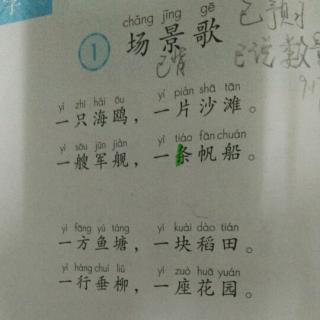 chǎng jǐng gē
① 场景歌
已预习
已背
已说数量
yì zhī hǎi ōu yí piàn shā tān
一只海鸥，一片沙滩。
yì sōu jūn jiàn yì tiáo fān chuán
一艘军舰，一条帆船。
yì fāng yú táng yí kuài dào tián
一方鱼塘，一块稻田。
yì háng chuí liǔ yí zuò huā yuán
一行垂柳，一座花园。